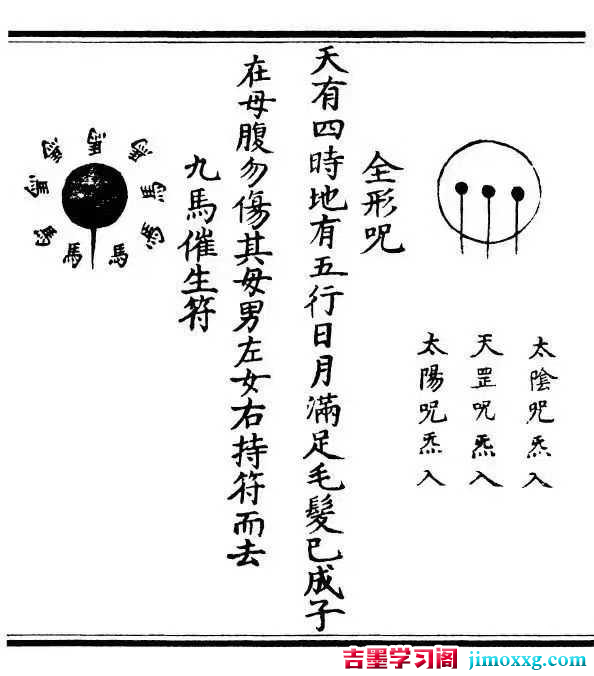 太陰咒炁入
天罡咒炁入
太陽咒炁入
全形咒
天有四時地有五行日月滿足毛髮已成子
在母腹勿傷其母男左女右持符而去
九馬催生符
馬馬馬馬馬馬馬馬馬
吉墨学习阁 jimoxxg.com